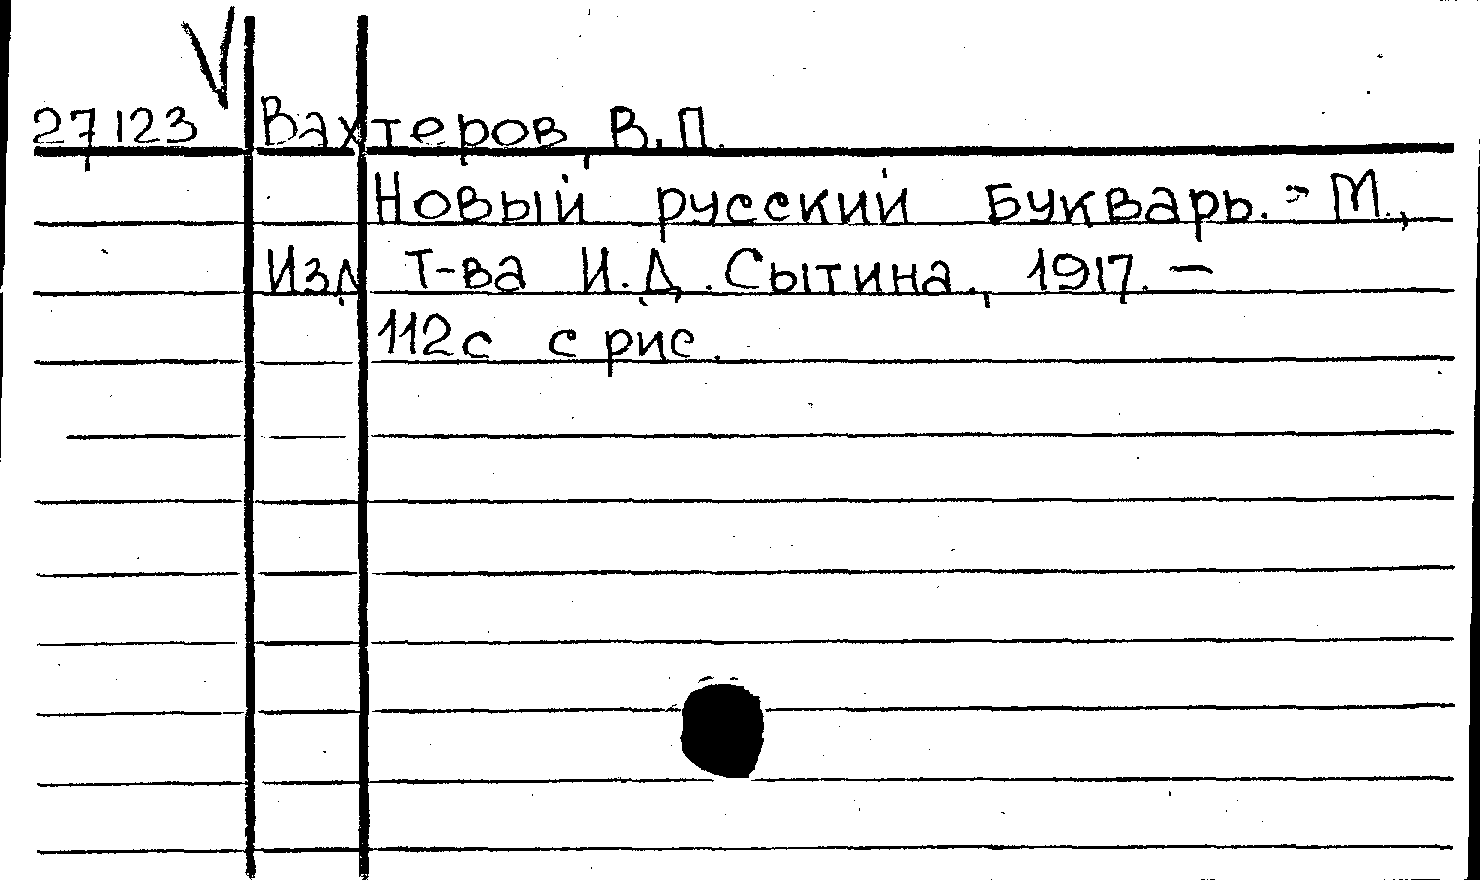 27123 Вахтеров, В.П.
Новый русский Букварь. - М.,
Изд. Т-ва И.Д. Сытина., 1917. -
112с с рис.